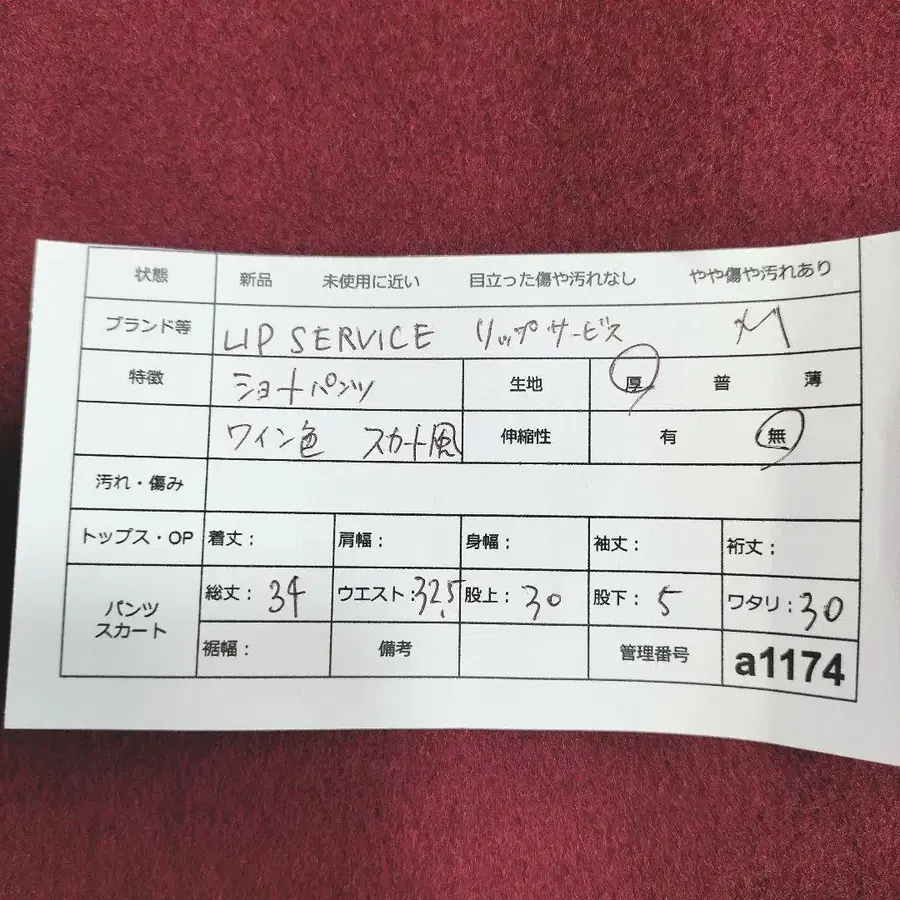 状態 新品 未使用に近い 目立った傷や汚れなし やや傷や汚れあり
ブランド等 LIP SERVICE リップサービス M
特徴 ショートパンツ 生地 厚 普 薄
ワイン色 スカート風 伸縮性 有 無
汚れ・傷み
トップス・OP 着丈: 肩幅: 身幅: 袖丈: 裄丈:
パンツ スカート 総丈: 34 ウエスト: 32.5 股上: 30 股下: 5 ワタリ: 30
裾幅: 備考 管理番号 a1174